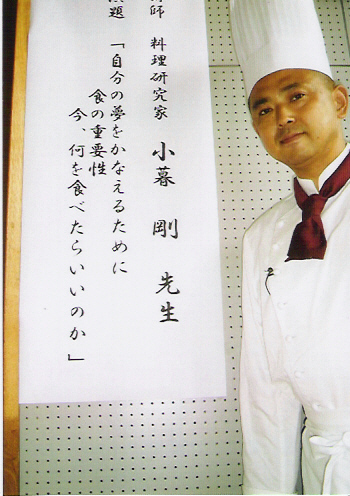 師 料理研究家 小暮 剛 先生
題 「自分の夢をかなえるために
食の重要性
今、何を食べたらいいのか」